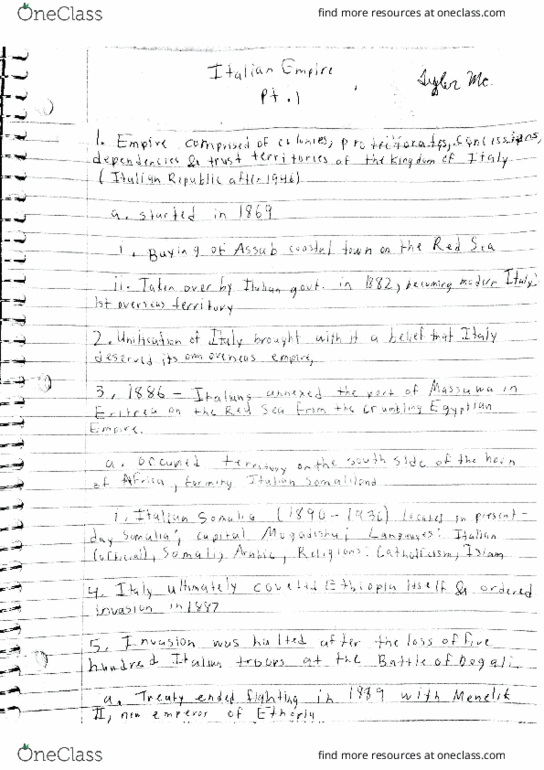 OneClass
find more resources at oneclass.com
Italian Empire
Pt. 1
Mc.
1. Empire comprised of colonies, protritorates, concissions,
dependencies & trust territories of the Kingdom of Italy
(Italian Republic after 1946)
a. started in 1869
i. Buying of Assub coastal town on the Red Sea
ii. Taken over by Italian govt. in 1882, becoming modern Italy's
1st overseas territory
2. Unification of Italy brought with it a belief that Italy
deserved its own overseas empire,
3. 1886 - Italians annexed the port of Massawa in
Eritrea on the Red Sea from the crumbling Egyptian
Empire.
a. occupied territory on the south side of the horn
of Africa, forming Italian Somaliland
1. Italian Somalia (1890-1936) located in present-
day Somalia; capital Mogadishu; Languages: Italian
(official), Somali, Arabic, Religions: Catholicism, Islam
4. Italy ultimately coveted Ethiopia itself & ordered
invasion in 1887
5. Invasion was halted after the loss of five
hundred Italian troops at the Battle of Dogali.
a. Treaty ended fighting in 1889 with Menelik
II, new emperor of Ethopia
OneClass
find more resources at oneclass.com